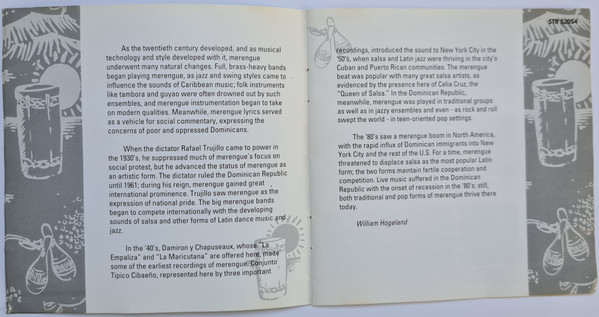 As the twentieth century developed, and as musical
technology and style developed with it, merengue
underwent many natural changes. Full, brass-heavy bands
began playing merengue, as jazz and swing styles came to
influence the sounds of Caribbean music; folk instruments
like tambora and guyao were often drowned out by such
ensembles, and merengue instrumentation began to take
on modern qualities. Meanwhile, merengue lyrics served
as a vehicle for social commentary, expressing the
concerns of poor and oppressed Dominicans.
When the dictator Rafael Trujillo came to power in
the 1930's, he suppressed much of merengue's focus on
social protest, but he advanced the status of merengue as
an artistic form. The dictator ruled the Dominican Republic
until 1961; during his reign, merengue gained great
international prominence. Trujillo saw merengue as the
expression of national pride. The big merengue bands
began to compete internationally with the developing
sounds of salsa and other forms of Latin dance music and
jazz.
In the '40's, Damiron y Chapuseaux, whose "La
Empaliza" and "La Maricutana" are offered here, made
some of the earliest recordings of merengue. Conjunto
Tipico Cibaeño, represented here by three important
STR 52054
recordings, introduced the sound to New York City in the
'50's, when salsa and Latin jazz were thriving in the city's
Cuban and Puerto Rican communities. The merengue
beat was popular with many great salsa artists, as
evidenced by the presence here of Celia Cruz, the
"Queen of Salsa." In the Dominican Republic,
meanwhile, merengue was played in traditional groups
as well as in jazzy ensembles and even - as rock and roll
swept the world - in teen-oriented pop settings.
The '80's saw a merengue boom in North America,
with the rapid influx of Dominican immigrants into New
York City and the rest of the U.S. For a time, merengue
threatened to displace salsa as the most popular Latin
form; the two forms maintain fertile cooperation and
competition. Live music suffered in the Dominican
Republic with the onset of recession in the '80's; still,
both traditional and pop forms of merengue thrive there
today.
William Hogeland